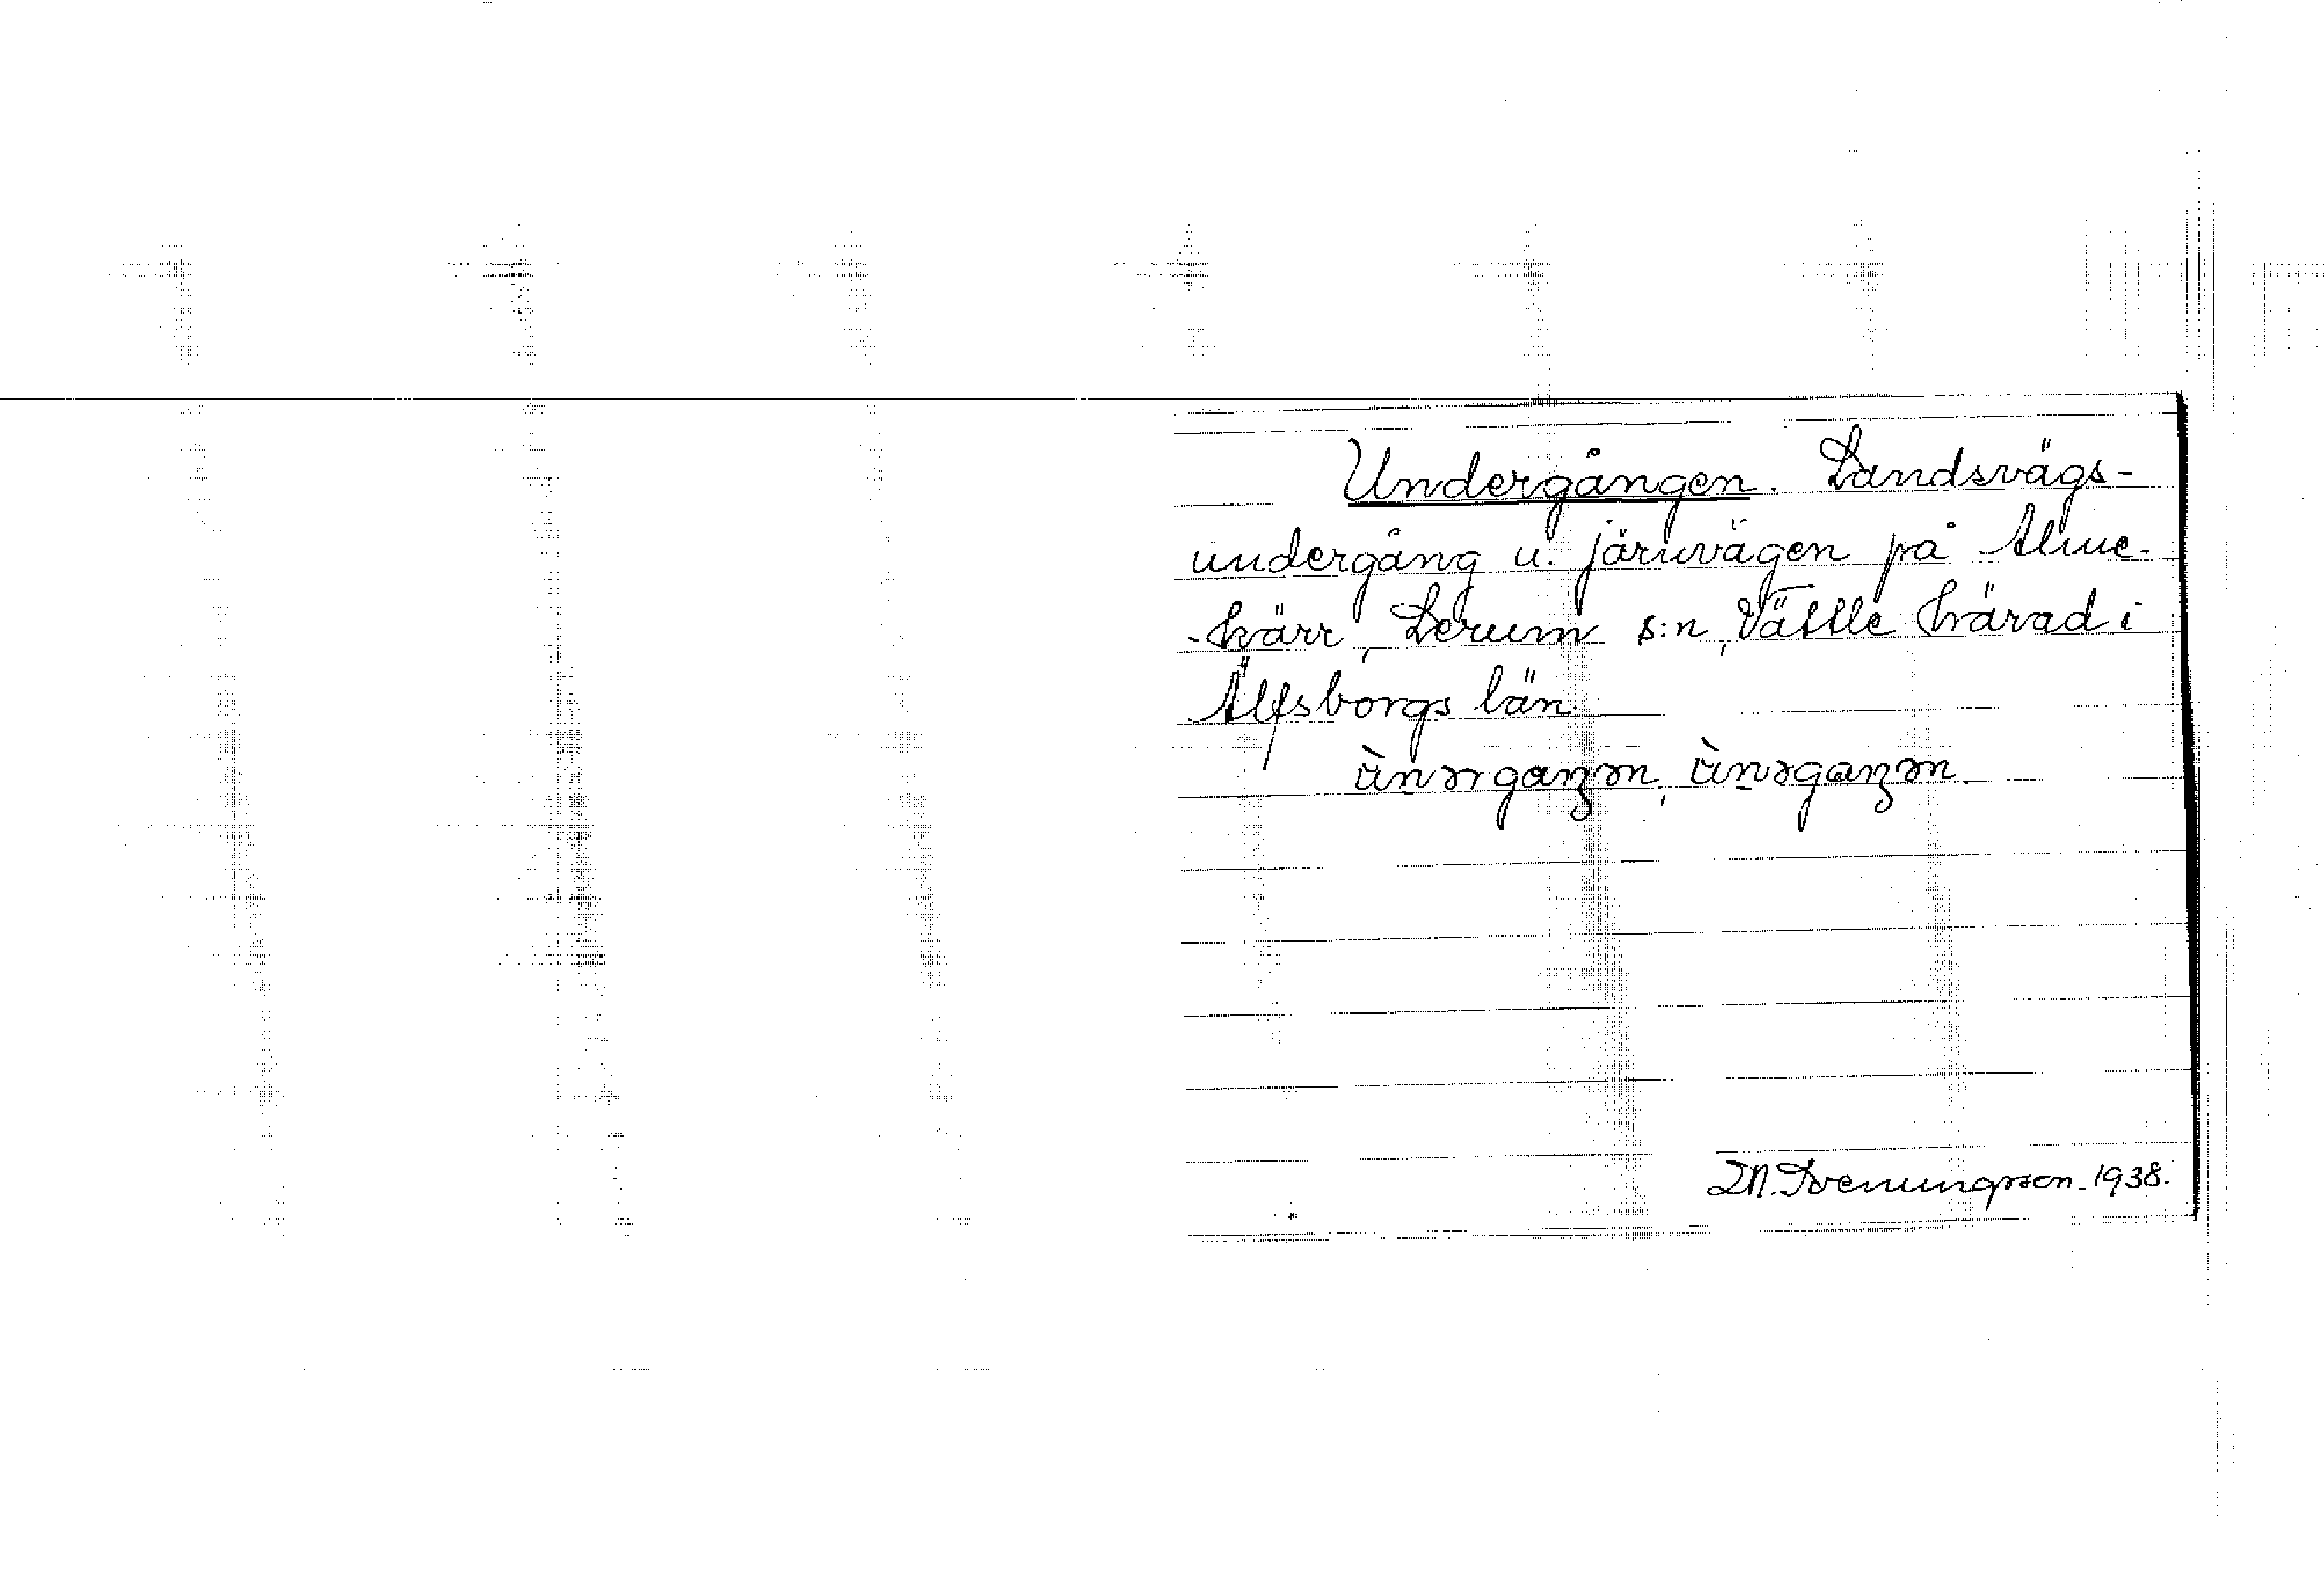 Undergången. Landsvägs-
undergång u. järnvägen på Alme-
-kärr, Lerum s:n, Vättle härad i
Älfsborgs län.
ùnərgaŋən, ùnəgaŋən.
Svenungsson. 1938.